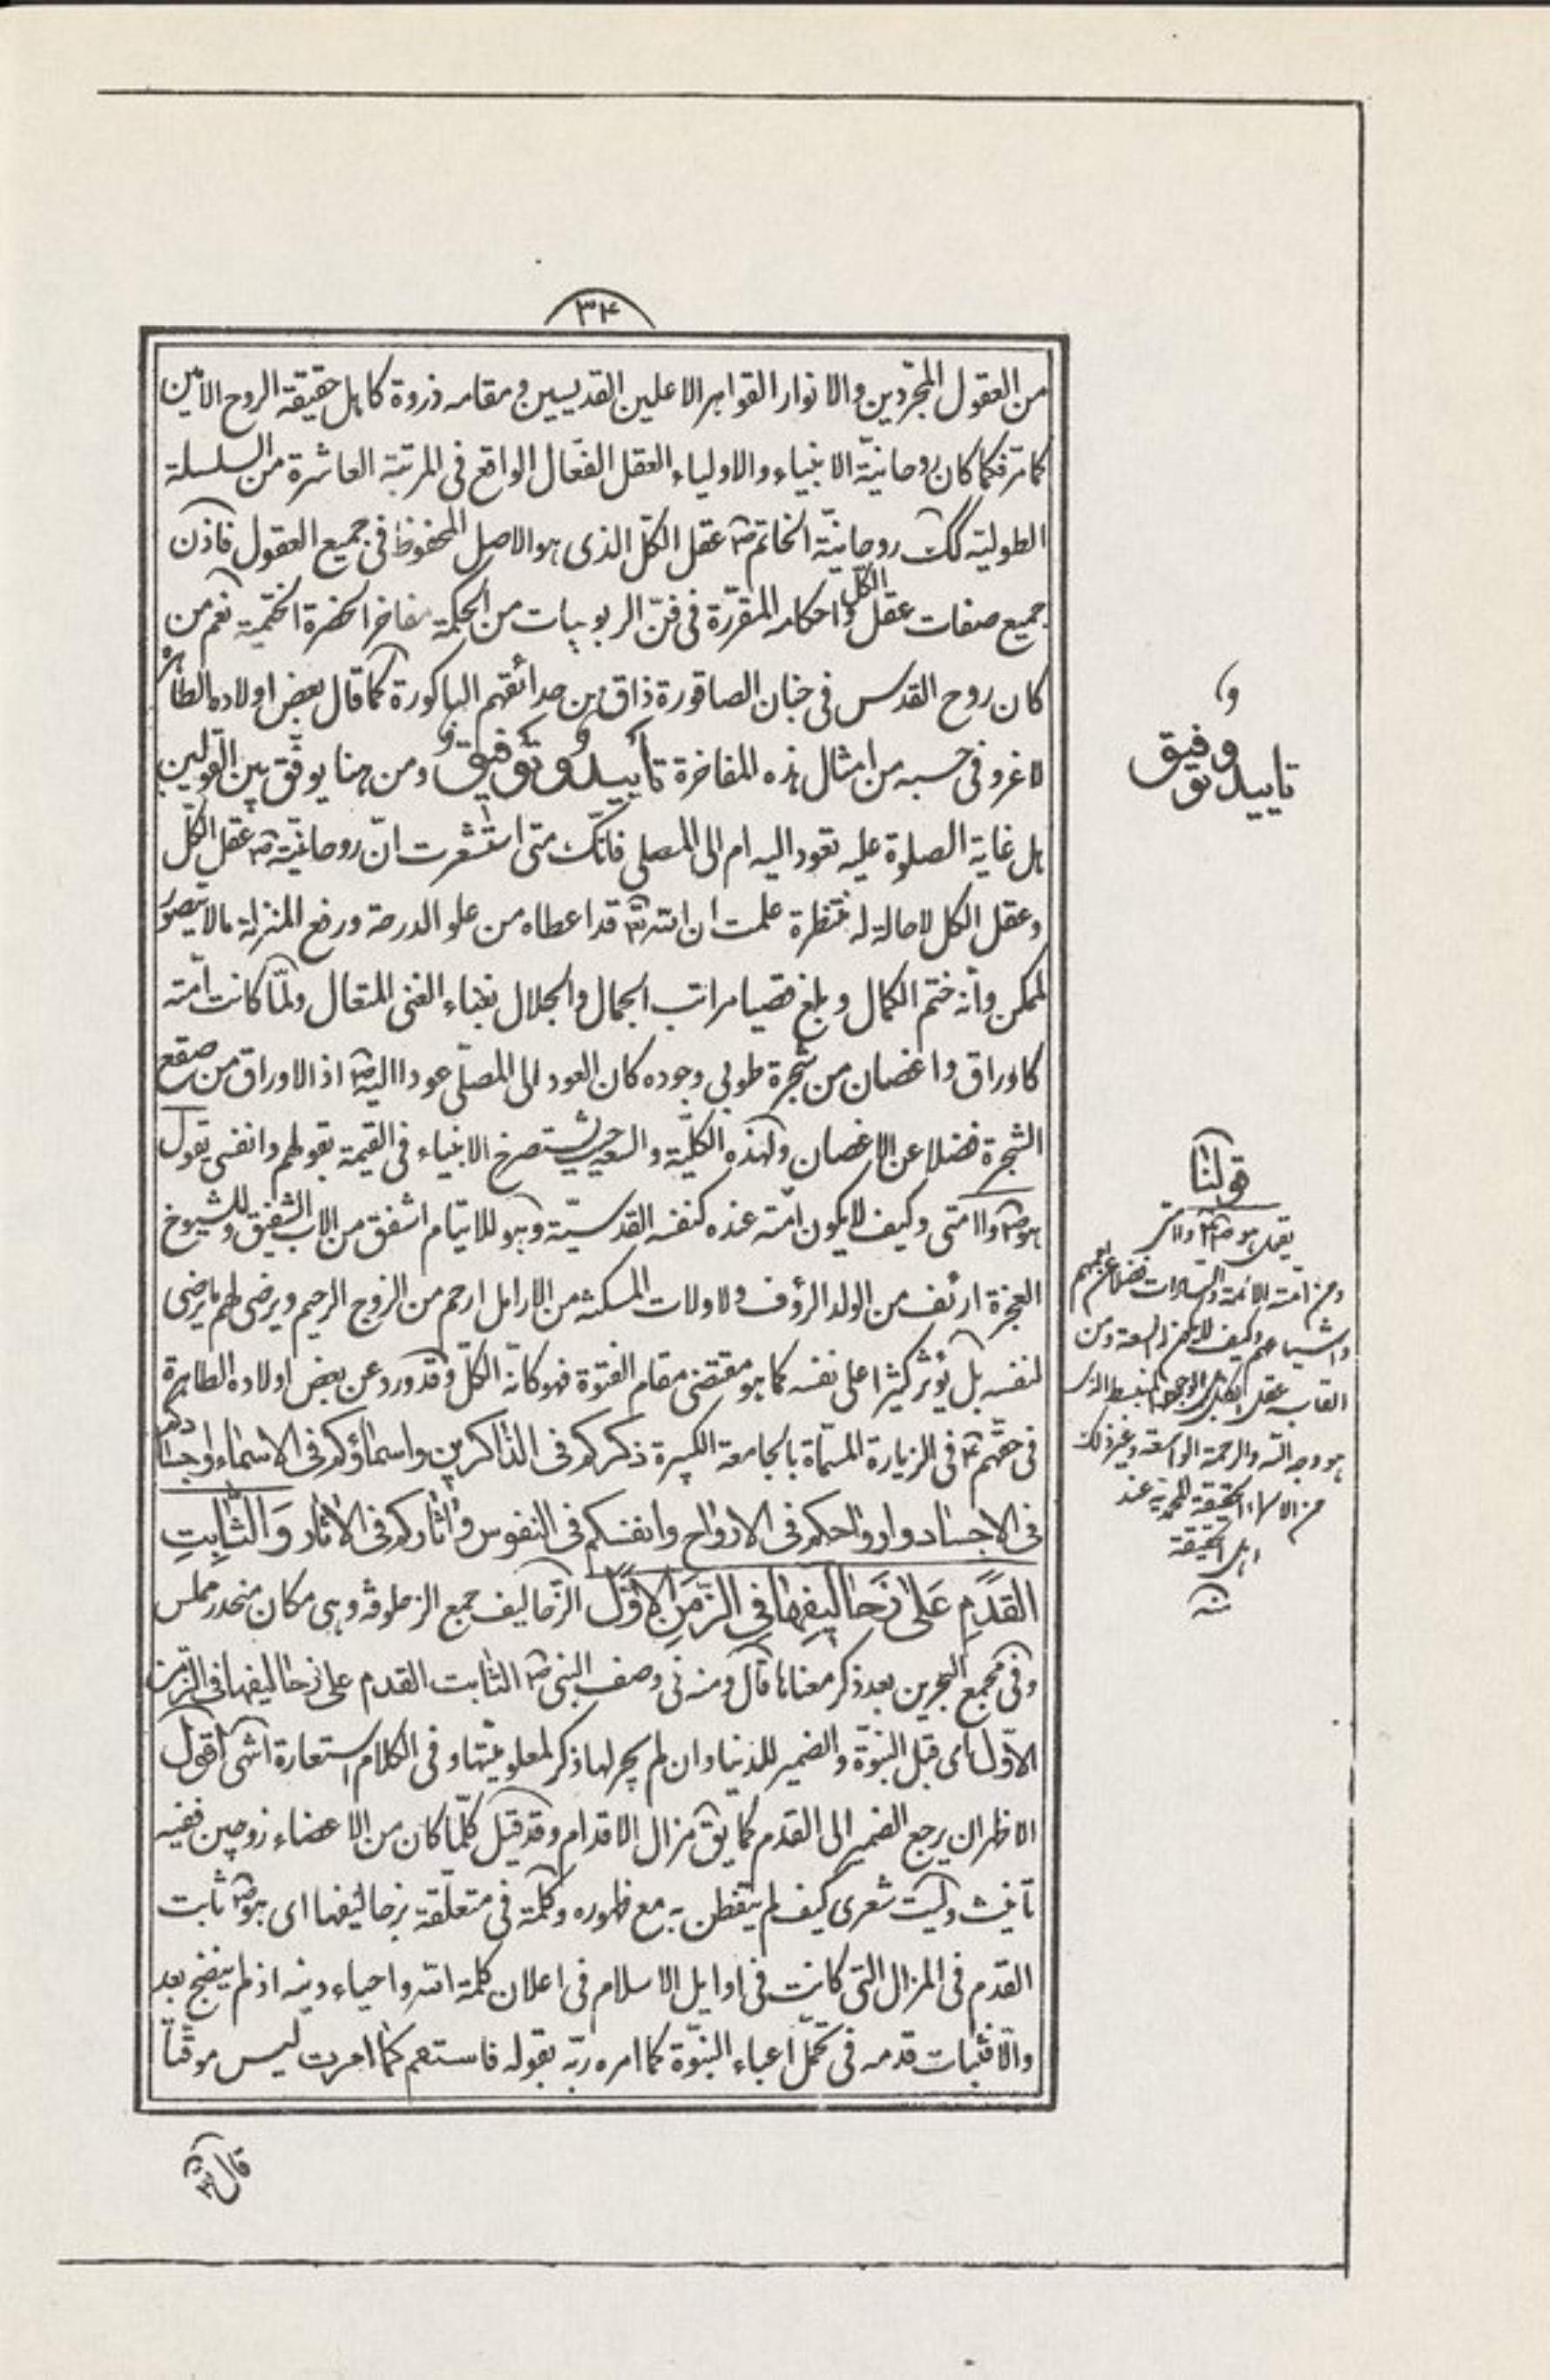 ٣٤
من العقول المجرّدين والانوار القواهر الاعلين القديسين ومقامه ذروة كاهل حقيقة الروح الامين
كما مرّ فكما كان روحانيّة الانبياء والاولياء العقل الفعّال الواقع فى المرتبة العاشرة من السلسلة
الطوليّه كك روحانيّة الخاتم ص عقل الكلّ الذى هو الاصل المحفوظ فى جميع العقول فاذن
جميع صفات عقل الكلّ واحكامه المقرّرة فى فنّ الربوبيات من الحكمة مفاخر الحضرة الختميّة نعم من
كان روح القدس فى جنان الصاقورة ذاق من حدائقهم الباكورة كما قال بعض اولاده الطاهرة
لا غرو فى حسبه من امثال هذه المفاخرة تأييد و توفيق ومن هنا يوفّق بين القولين
هل غاية الصلوة عليه تعود اليه ام الى المصلى فانّك متى استشعرت انّ روحانيّته ص عقل الكلّ
وعقل الكل لا حالة له منتظرة علمت ان الله تم قد اعطاه من علو الدرجة ورفع المنزلة ما لا يتصوّر
لممكن وأنه ختم الكمال وبلغ قصيا مراتب الجمال والجلال بغناء الغنى المتعال ولمّا كانت امّته
كاوراق واغصان من شجرة طوبى وجوده كان العود الى المصلّى عودا اليه ص اذ الاوراق من صقع
الشجرة فضلا عن الاغصان ولهذه الكلّيّة والسعة حيث يستصرخ الانبياء فى القيمة بقولهم وانفسى يقول
هو ص واامتى وكيف لا يكون امّته عنده كنفسه القدسيّة وهو للايتام اشفق من الاب الشفيق وللشيوخ
العجزة ارئف من الولد الرؤف ولاولات المسكنه من الارامل ارحم من الزوج الرحيم ويرضى لهم ما يرضى
لنفسه بل يؤثر كثيرا على نفسه كما هو مقتضى مقام الفتوة فهو كانّه الكلّ وقد ورد عن بعض اولاده الطاهرة
فى حقّهم ع فى الزيارة المسمّاة بالجامعة الكبيرة ذكركم فى الذاكرين واسماؤكم فى الاسماء واجسادكم
فى الاجساد وارواحكم فى الارواح وانفسكم فى النفوس واثاركم فى الاثار وَالثّابِتِ
القَدَمِ عَلىٰ زَحالِيفِها فِى الزَّمَنِ الأَوَّلِ الزّحاليف جمع الزحلوفة وهى مكان منحدر مملس
وفى مجمع البحرين بعد ذكر معناها قال ومنه فى وصف النبى ص الثابت القدم على زحاليفها فى الزّمن
الاوّل اى قبل النبوّة والضمير للدنيا وان لم يجر لها ذكر لمعلوميّتها وفى الكلام استعارة انتهى اقول
الاظهر ان يرجع الضمير الى القدم كما يق مزال الاقدام وقد قيل كلّما كان من الاعضاء زوجين ففيه
تأنيث وليت شعرى كيف لم يتفطن به مع ظهوره وكلمة فى متعلّقة بزحاليفها اى هو ص ثابت
القدم فى المزال التى كانت فى اوايل الاسلام فى اعلان كلمة الله واحياء دينه اذ لم ينضج بعد
والّا فثبات قدمه فى تحمّل اعباء النبوّة كما امره ربّه بقوله فاستقم كما امرت ليس موقّتاً
قال
تاييد و توفيق
قولنا
يقول هو ص واامتى
ومن امّته الائمة والسادات فضلا عن
واشياعهم وكيف لا يكون له السعة ومن
القابه عقل الكل والوجود المنبسط الذى
هو وجه الله والرحمة الواسعة وغير ذلك
من الاسماء الحقيقة المحمدية عند
اهل الحقيقة
منه